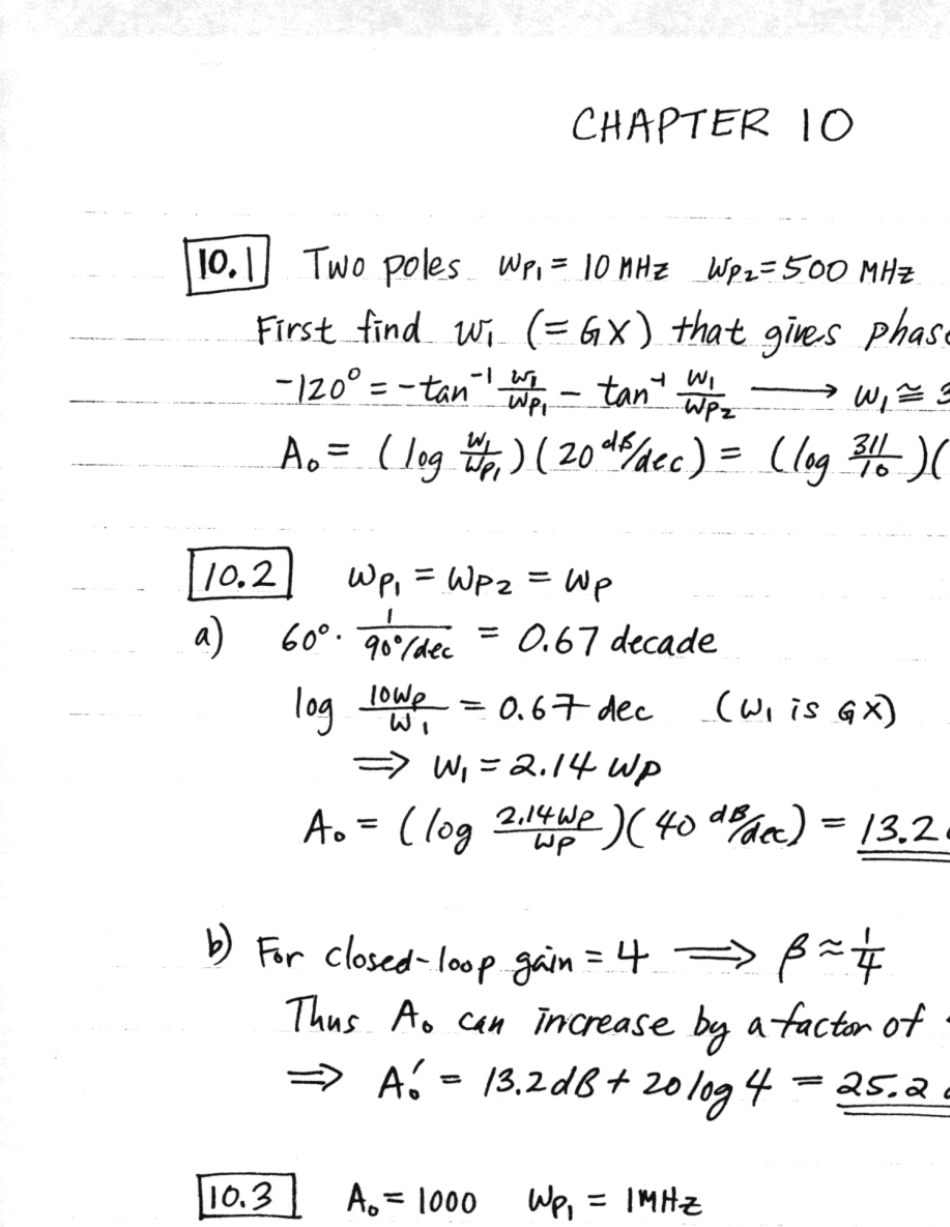 CHAPTER 10
10.1 Two poles ωp₁ = 10 MHz ωp₂ = 500 MHz
First find ω₁ (= GX) that gives
-120° = -tan⁻¹ ω₁/ωp₁ - tan⁻¹ ω₁/ωp₂ ⟶ ω₁ ≅ 3
A₀ = (log ω₁/ωp₁)(20 dB/dec) = (log 311/10)(
10.2 ωp₁ = ωp₂ = ωp
a) 60° · 1/90°/dec = 0.67 decade
log 10ωp/ω₁ = 0.67 dec (ω₁ is GX)
⟹ ω₁ = 2.14 ωp
A₀ = (log 2.14ωp/ωp)(40 dB/dec) = 13.2
b) For closed-loop gain = 4 ⟹ β ≈ 1/4
Thus A₀ can increase by a factor of
⟹ A₀′ = 13.2dB + 20 log 4 = 25.2
10.3 A₀ = 1000 ωp₁ = 1MHz